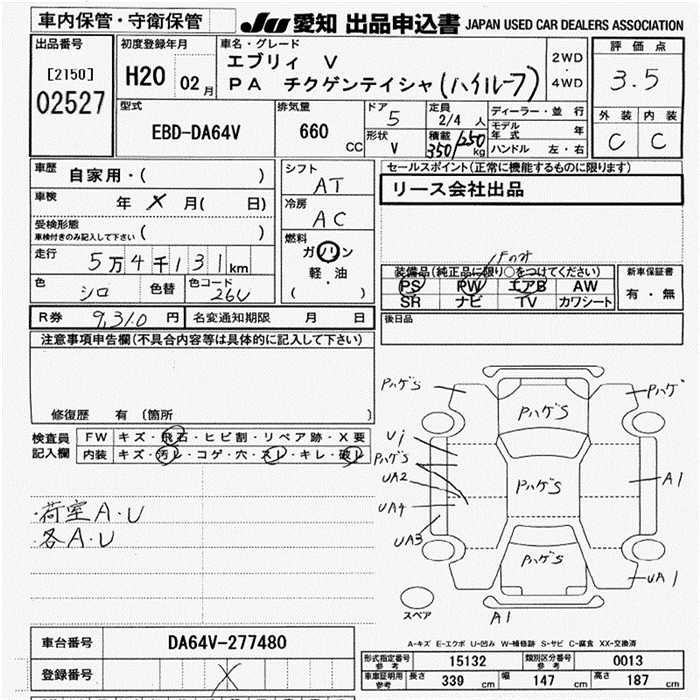 車内保管・守衛保管
JU 愛知 出品申込書 JAPAN USED CAR DEALERS ASSOCIATION
出品番号
[2150]
02527
初度登録年月
H20 02月
車名・グレード
エブリィ V
PA チクゲンテイシャ(ハイルーフ)
2WD
・
4WD
評価点
3.5
外装 内装
C C
型式
EBD-DA64V
排気量
660 CC
ドア
5
形状
V
定員
2/4 人
積載
350/250 kg
ディーラー・並行
モデル年式 年
ハンドル 左・右
車歴
自家用・( )
車検 年 X 月( 日)
受検形態
車検付きのみ記入して下さい ( )
走行
5万4千131km
色 シロ 色替 色コード 26U
シフト
AT
冷房
AC
燃料
ガソリン
軽・油
( )
セールスポイント(正常に機能するものに限ります)
リース会社出品
Fのみ
装備品(純正品に限り○をつけてください)
PS PW エアB AW
SR ナビ TV カワシート
新車保証書
有・無
R券 9,310 円 名変通知期限 月 日
後日品
注意事項申告欄(不具合内容等は具体的に記入して下さい)
修復歴 有〔箇所 〕
検査員記入欄
FW キズ・飛石・ヒビ割・リペア跡・X要
内装 キズ・汚レ・コゲ・穴・スレ・キレ・破レ
・荷室A・U
・各A・U
PハゲS
Pハゲ
PハゲS
Ui
PハゲS
UA2
UA4
UA3
PハゲS
A1
PハゲS
UA1
スペア
A1
A-キズ E-エクボ U-凹み W-補修跡 S-サビ C-腐食 XX-交換済
車台番号 DA64V-277480
登録番号 X
形式指定番号 参考 15132 類別区分番号 参考 0013
車庫証明用 参考 長さ 339 cm 幅 147 cm 高さ 187 cm